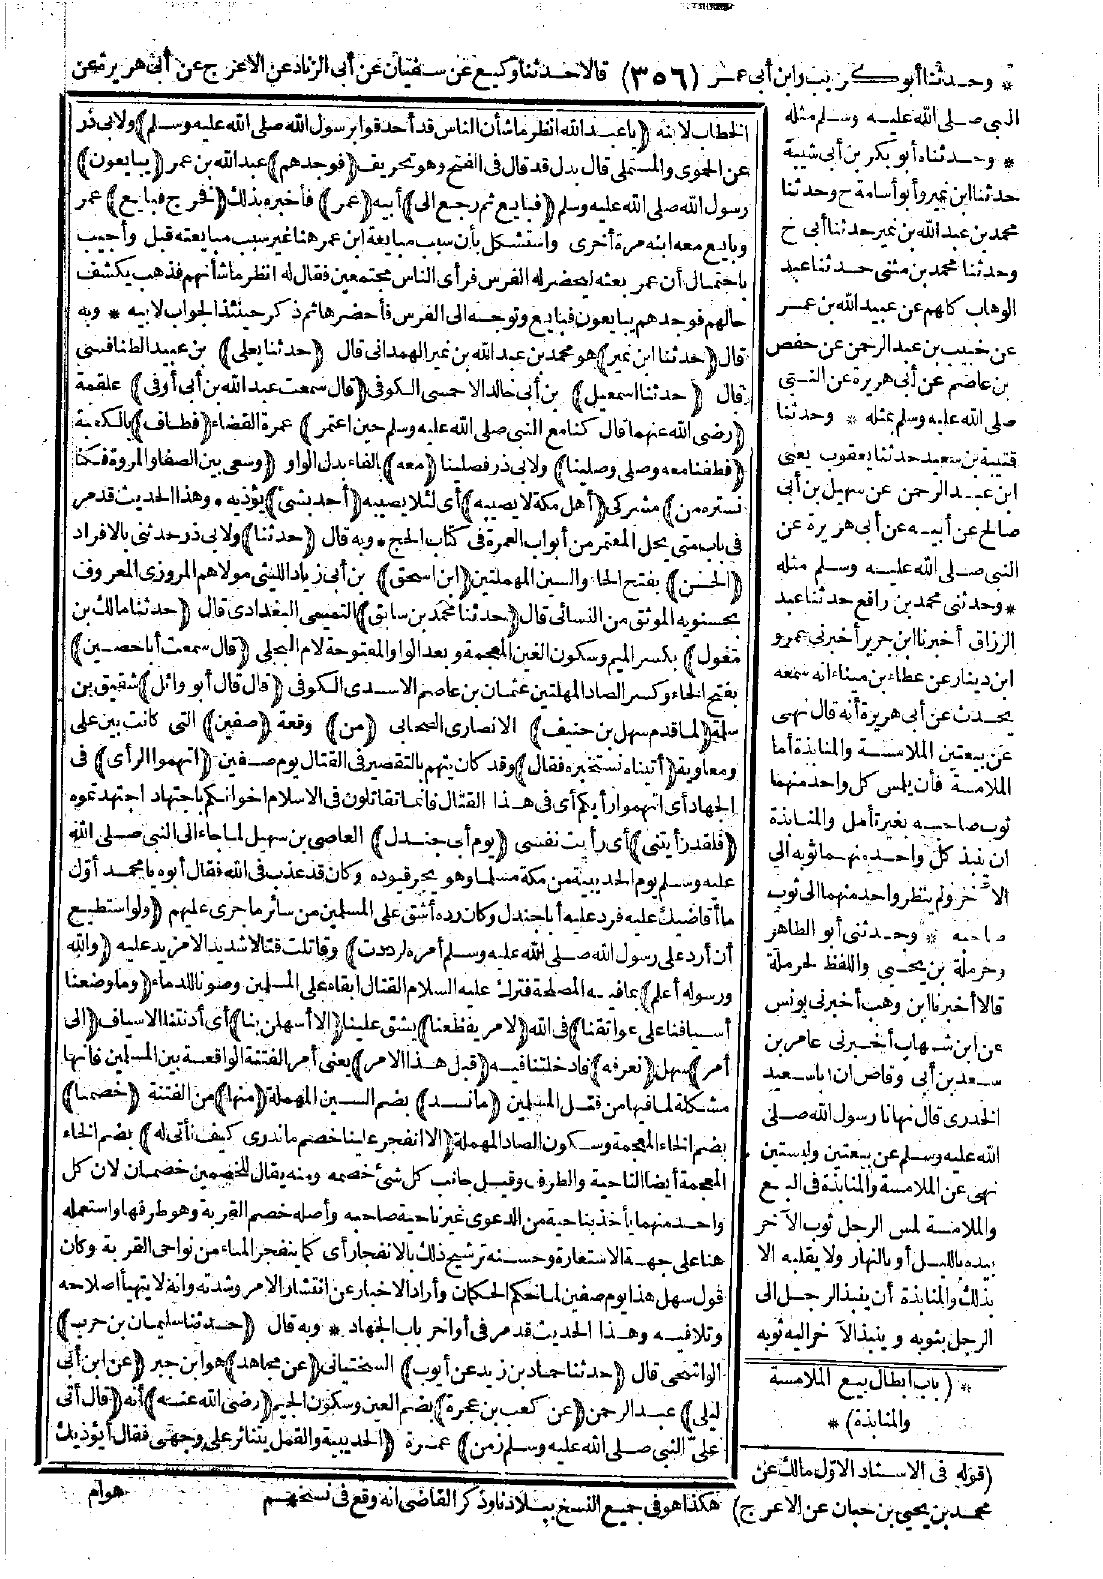 * وحدثنا أبو كريب وابن أبي عمر (٣٥٦) قالا حدثنا وكيع عن سفيان عن أبى الزناد عن الاعرج عن أبى هريرة عن
النبي صلى الله عليه وسلم مثله
* وحدثناه أبو بكر بن أبي شيبة
حدثنا ابن نمير وأبو أسامة ح وحدثنا
محمد بن عبد الله بن نمير حدثنا أبي ح
وحدثنا محمد بن مثنى حدثنا عبد
الوهاب كلهم عن عبيد الله بن عمر
عن خبيب بن عبد الرحمن عن حفص
بن عاصم عن أبي هريرة عن النبي
صلى الله عليه وسلم بمثله * وحدثنا
قتيبة بن سعيد حدثنا يعقوب يعني
ابن عبد الرحمن عن سهيل بن أبي
صالح عن أبيه عن أبي هريرة عن
النبي صلى الله عليه وسلم مثله
* وحدثنى محمد بن رافع حدثنا عبد
الرزاق أخبرنا ابن جريج أخبرني عمرو
ابن دينار عن عطاء بن ميناء انه سمعه
يحدث عن أبي هريرة أنه قال نهى
عن بيعتين الملامسة والمنابذة أما
الملامسة فأن يلمس كل واحد منهما
ثوب صاحبه بغير تأمل والمنابذة
ان ينبذ كل واحد منهما ثوبه الى
الآخر ولم ينظر واحد منهما الى ثوب
صاحبه * وحدثنى أبو الطاهر
وحرملة بن يحيى واللفظ لحرملة
قالا أخبرنا ابن وهب أخبرنى يونس
عن ابن شهاب أخبرنى عامر بن
سعد بن أبى وقاص ان أبا سعيد
الخدرى قال نهانا رسول الله صلى
الله عليه وسلم عن بيعتين ولبستين
نهى عن الملامسة والمنابذة فى البيع
والملامسة لمس الرجل ثوب الآخر
بيده بالليل أو بالنهار ولا يقلبه الا
بذلك والمنابذة أن ينبذ الرجل الى
الرجل بثوبه وينبذ الآخر اليه ثوبه
* (باب ابطال بيع الملامسة
والمنابذة) *
(قوله فى الاسناد الاول مالك عن
محمد بن يحيى بن حبان عن الاعرج)
الخطاب لابنه (يا عبد الله انظر ما شأن الناس قد أحدقوا برسول الله صلى الله عليه وسلم) ولابي ذر
عن الحموى والمستملى قال بدل قد قال فى الفتح وهو تحريف (فوجدهم) عبد الله بن عمر (يبايعون)
رسول الله صلى الله عليه وسلم (فبايع ثم رجع الى) أبيه (عمر) فأخبره بذلك (فخرج فبايع) عمر
وبايع معه ابنه مرة أخرى واستشكل بأن سبب مبايعة ابن عمر هنا غير سبب مبايعته قبل وأجيب
باحتمال أن عمر بعثه ليحضر له الفرس فرأى الناس مجتمعين فقال له انظر ما شأنهم فذهب يكشف
حالهم فوجدهم يبايعون فبايع وتوجه الى الفرس فأحضرها ثم ذكر حينئذ الجواب لابيه * وبه
قال (حدثنا ابن نمير) هو محمد بن عبد الله بن نمير الهمدانى قال (حدثنا يعلى) بن عبيد الطنافسى
قال (حدثنا اسمعيل) بن أبى خالد الاحمسى الكوفى (قال سمعت عبد الله بن أبى أوفى) علقمة
(رضى الله عنهما قال كنا مع النبى صلى الله عليه وسلم حين اعتمر) عمرة القضاء (فطاف) بالكعبة
(فطفنا معه وصلى وصلينا) ولابى ذر فصلينا (معه) بالفاء بدل الواو (وسعى بين الصفا والمروة فكنا
نستره من) مشركى (أهل مكة لا يصيبه) أى لئلا يصيبه (أحد بشئ) يؤذيه * وهذا الحديث قد مر
فى باب متى يحل المعتمر من أبواب العمرة فى كتاب الحج * وبه قال (حدثنا) ولابى ذر حدثنى بالافراد
(الحسن) بفتح الحاء والسين المهملتين (ابن اسحق) بن أبى زياد الليثى مولاهم المروزى المعروف
بحسنويه الموثق من النسائى قال (حدثنا محمد بن سابق) التميمى البغدادى قال (حدثنا مالك بن
مغول) بكسر الميم وسكون الغين المعجمة وبعد الواو المفتوحة لام البجلى (قال سمعت أبا حصين)
بفتح الحاء وكسر الصاد المهملتين عثمان بن عاصم الاسدى الكوفى (قال قال أبو وائل) شقيق بن
سلمة (لما قدم سهل بن حنيف) الانصارى الصحابى (من) وقعة (صفين) التى كانت بين على
ومعاوية (أتيناه نستخبره فقال) وقد كان يتهم بالتقصير فى القتال يوم صفين (اتهموا الرأى) فى
الجهاد أى اتهموا رأيكم أى فى هذا القتال فانما تقاتلون فى الاسلام اخوانكم باجتهاد اجتهدتموه
(فلقد رأيتنى) أى رأيت نفسى (يوم أبى جندل) العاصى بن سهيل لما جاء الى النبى صلى الله
عليه وسلم يوم الحديبية من مكة مسلما وهو يجر قيوده وكان قد عذب فى الله فقال أبوه يا محمد أوّل
ما أقاضيك عليه فرد عليه أبا جندل وكان رده أشق على المسلمين من سائر ما جرى عليهم (ولو استطيع
أن أرد على رسول الله صلى الله عليه وسلم أمره لرددت) وقاتلت قتالا شديدا لامزيد عليه (والله
ورسوله أعلم) بما فيه المصلحة فترك عليه السلام القتال ابقاء على المسلمين وصونا للدماء (وما وضعنا
أسيافنا على عواتقنا) فى الله (لامر يفظعنا) يشق علينا (الا أسهلن بنا) أى أدنتنا الاسياف (الى
أمر) سهل (نعرفه) فادخلتنا فيه (قبل هذا الامر) يعنى أمر الفتنة الواقعة بين المسلمين فانها
مشكلة لما فيها من قتل المسلمين (ما نسد) بضم السين المهملة (منها) من الفتنة (خصما)
بضم الخاء المعجمة وسكون الصاد المهملة (الا انفجر علينا خصم ما ندرى كيف نأتى له) بضم الخاء
المعجمة أيضا الناحية والطرف وقيل جانب كل شئ خصمه ومنه يقال للخصمين خصمان لان كل
واحد منهما يأخذ بناحية من الدعوى غير ناحية صاحبه وأصله خصم القربة وهو طرفها واستعمله
هنا على جهة الاستعارة وحسنه ترشيح ذلك بالانفجار أى كما ينفجر الماء من نواحى القربة وكان
قول سهل هذا يوم صفين لما حكم الحكمان وأراد الاخبار عن انتشار الامر وشدته وانه لا يتهيأ اصلاحه
وتلافيه وهذا الحديث قد مر فى أواخر باب الجهاد * وبه قال (حدثنا سليمان بن حرب)
الواشحى قال (حدثنا حماد بن زيد عن أيوب) السختيانى (عن مجاهد) هو ابن جبر (عن ابن أبى
ليلى) عبد الرحمن (عن كعب بن عجرة) بضم العين وسكون الجيم (رضى الله عنه) أنه (قال أتى
علىّ النبى صلى الله عليه وسلم زمن) عمرة (الحديبية والقمل يتناثر على وجهى فقال أيؤذيك
هكذا هو فى جميع النسخ ببلادنا وذكر القاضى انه وقع فى نسخهم
هوام